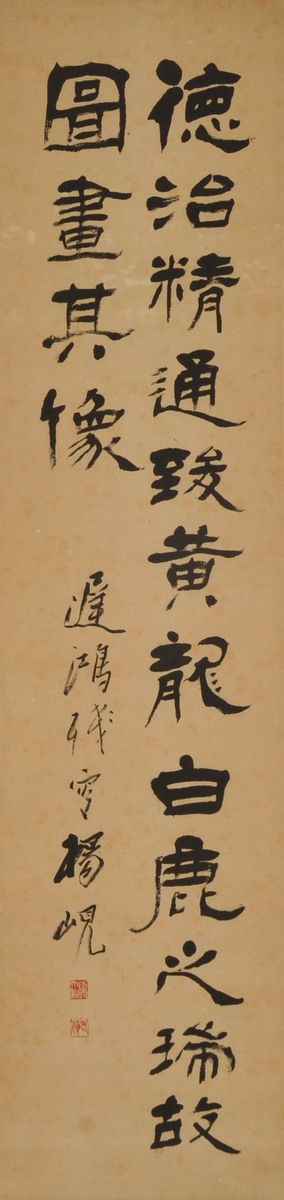 德治精通致黃龍白鹿之瑞故
圖畫其像
遲鴻殘叟楊峴